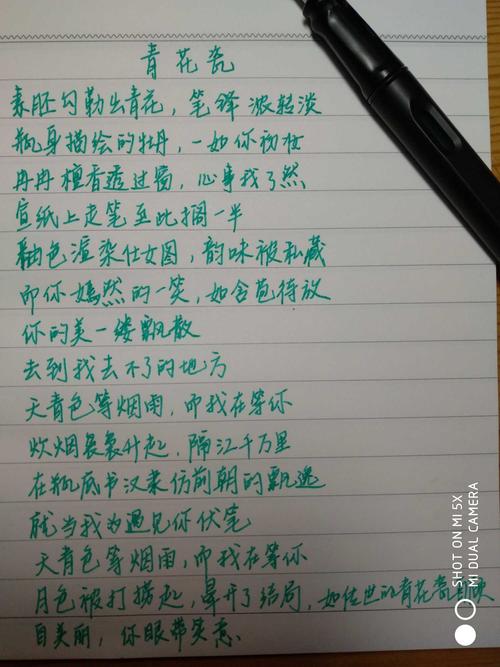 青花瓷
素胚勾勒出青花，笔锋浓转淡
瓶身描绘的牡丹，一如你初妆
冉冉檀香透过窗，心事我了然
宣纸上走笔至此搁一半
釉色渲染仕女图，韵味被私藏
而你嫣然的一笑，如含苞待放
你的美一缕飘散
去到我去不了的地方
天青色等烟雨，而我在等你
炊烟袅袅升起，隔江千万里
在瓶底书汉隶仿前朝的飘逸
就当我为遇见你伏笔
天青色等烟雨，而我在等你
月色被打捞起，晕开了结局，如传世的青花瓷自顾
自美丽，你眼带笑意.
SHOT ON MI 5X
MI DUAL CAMERA